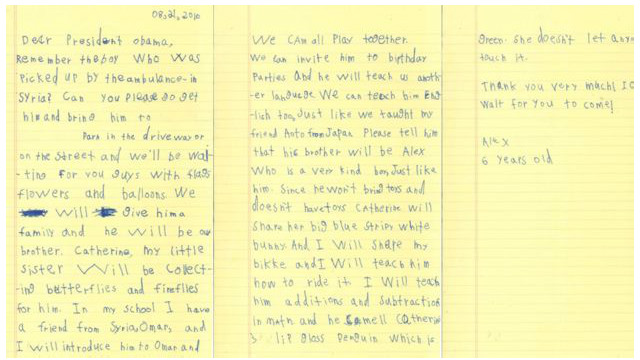 08,21,2016
Dear President obama,
Remember the boy who was
picked up by the ambulance in
Syria? Can you please go get
him and bring him to
Park in the driveway or
on the street and we'll be wai-
ting for you guys with flags
flowers and balloons. We
will give him a
family and he will be our
brother. Catherine, my little
sister will be collect-
ing butterflies and fireflies
for him. In my school I have
a friend from Syria, Omar, and
I will introduce him to Omar and
We can all play together.
We can invite him to birthday
parties and he will teach us anoth-
er language. We can teach him Eng-
lish too, just like we taught my
friend Aoto from Japan. Please tell him
that his brother will be Alex
who is a very kind boy, just like
him. Since he won't bring toys and
doesn't have toys Catherine will
share her big blue stripy white
bunny. And I will share my
bikke and I will teach him
how to ride it. I will teach
him additions and subtractions
in math and he smell Catherine
's lip gloss penguin which is
green. She doesn't let any
touch it.
Thank you very much! I
wait for you to come!
Alex
6 years old